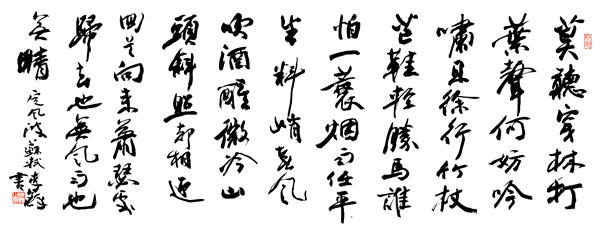 莫聽穿林打
葉聲何妨吟
嘯且徐行竹杖
芒鞋輕勝馬誰
怕一蓑烟雨任平
生料峭春風
吹酒醒微冷山
頭斜照却相迎
回首向来蕭瑟處
歸去也無風雨也
無晴
定風波蘇軾
書